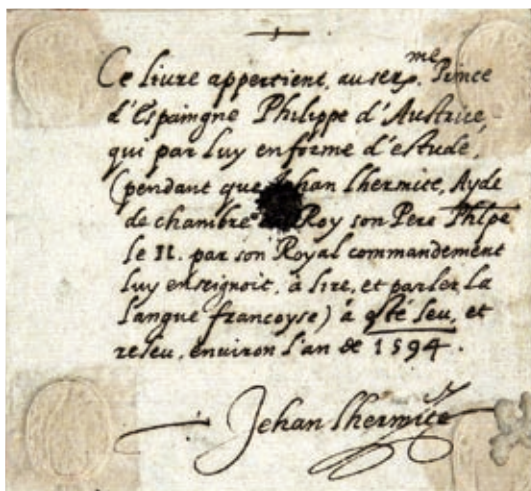 Ce livre appertient, au ser.me Prince
d'Espaingne Philippe d'Austrice,
qui par luy en forme d'estude,
(pendant que Jehan lhermite, Ayde
de chambre Roy son Pere Phlpe
le II. par son Royal commandement
luy enseignoit, à lire, et parler la
langue françoyse) à esté leu, et
releu, environ l'an de 1594.
Jehan lhermite